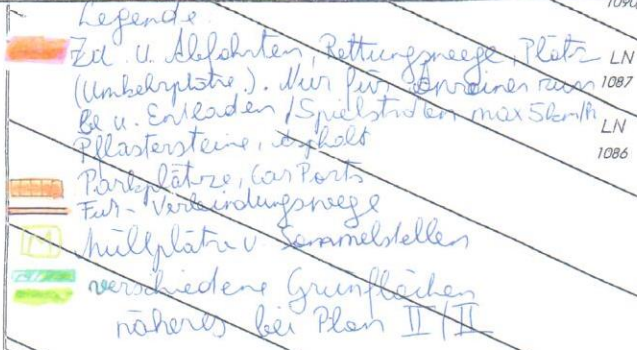 1090
Legende
Zu u. Abfahrten, Rettungswege, Plätze
LN
(Umkehrplätze). Nur für Anrainer zum
1087
Be u. Entladen / Spielstraßen max 5km/h
LN
Pflastersteine, Asphalt
1086
Parkplätze, Car Ports
Fuß- Verbindungswege
M Müllplätze u. Sammelstellen
verschiedene Grünflächen
näheres bei Plan II/II